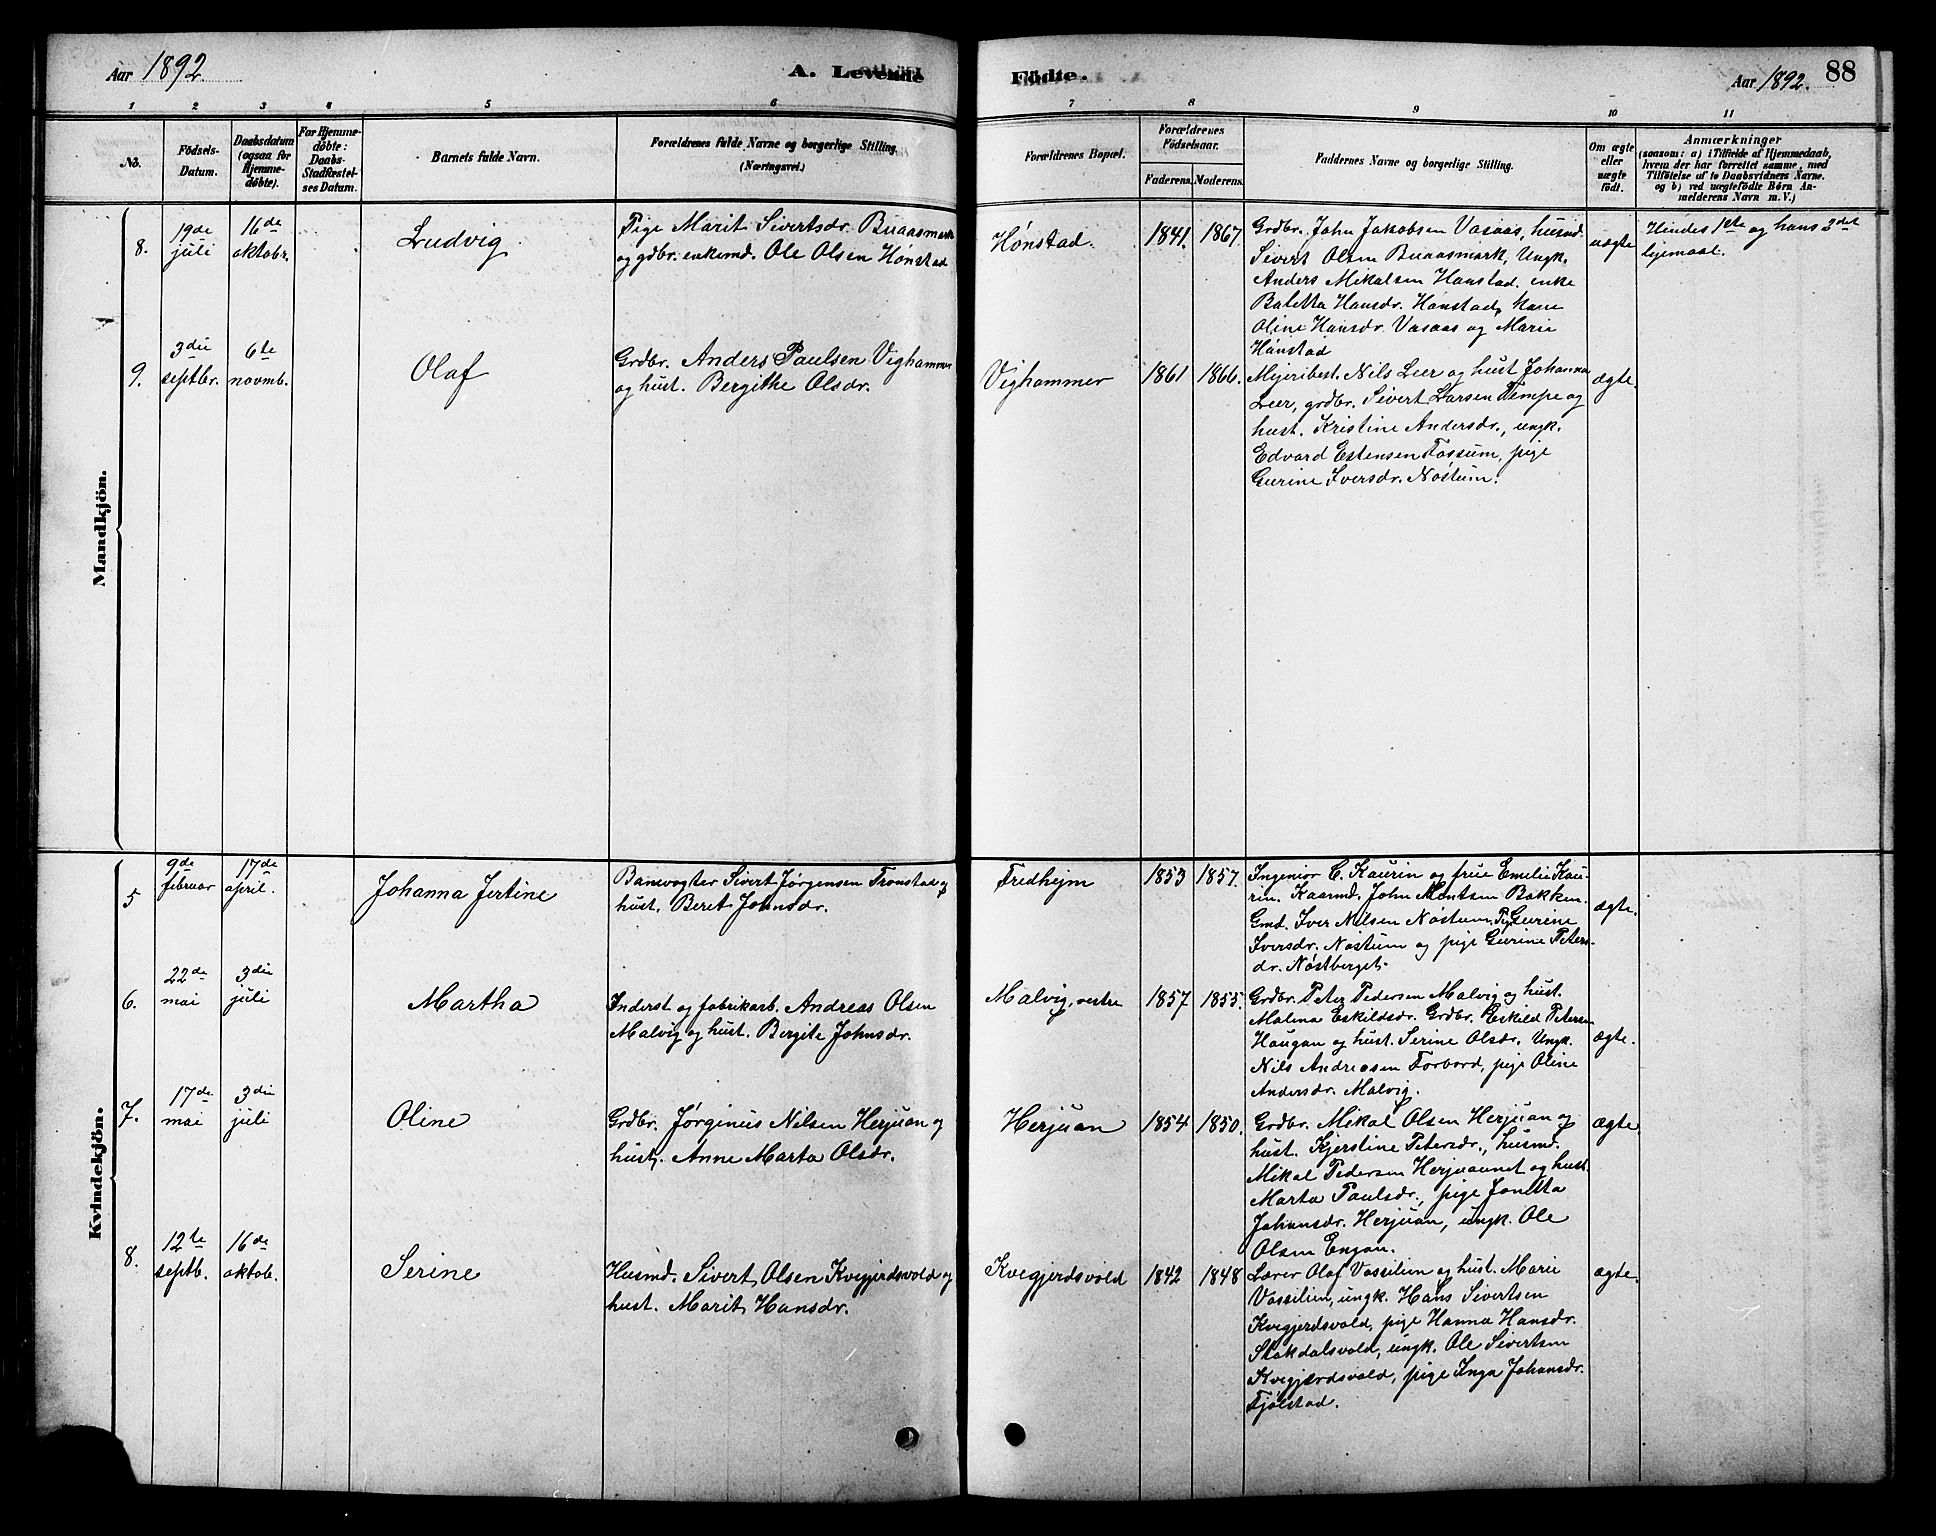 Aar 1892.
A. Levende
Födte.
Aar 1892.
88
1 2 3 4 5 6 7 8 9 10 11
No.
Födsels-
Datum.
Daabsdatum
(ogsaa for
Hjemme-
döbte).
For Hjemme-
döbte:
Daabs-
Stadfæstel-
ses Datum.
Barnets fulde Navn.
Forældrenes fulde Navne og borgerlige Stilling.
(Næringsvei.)
Forældrenes Bopæl.
Forældrenes
Födselsaar.
Faderens. Moderens.
Faddernes Navne og borgerlige Stilling.
Om ægte
eller
uægte
födt.
Anmærkninger
(saasom: a) i Tilfælde af Hjemmedaab,
hvem der har forrettet samme, med
Tilföielse af to Daabsvidners Navne.
og b) ved uægtefödte Börn An-
melderens Navn m.V.)
Mandkjön.
8.
19de
juli
16de
oktobr.
Ludvig
Pige Marit Sivertsdr. Buaasmark
og gdbr. enkemd. Ole Olsen Hønstad
Hønstad.
1841. 1867.
Grdbr. John Jakobsen Vasaas, husmd.
Sivert Olsen Buaasmark, Ungk.
Anders Mikalsen Hønstad. enke
Baletta Hansdr. Hønstad, kone
Oline Hansdr. Vasaas og Marie
Hønstad
uægte
Hendes 1ste og hans 3det
lejemaal.
9.
3die
septbr.
6te
novmb.
Olaf
Grdbr. Anders Paulsen Vighammer
og hust. Bergithe Olsdr.
Vighammer
1861 1866.
Mejeribest. Nils Leer og hust Johanna
Leer, grdbr. Sivert Larsen Tempe og
hust. Kristine Andersdr., ungk.
Edvard Estensen Fossum, pige
Gurine Iversdr. Nøstum.
ægte.
Kvindekjön.
5
9de
februar
17de
april.
Johanna Jertine
Banevogter Sivert Jørgensen Tronstad og
hust. Beret Johnsdr.
Fredhejm
1853 1857.
Ingeniør C. Kaurin og frue Emelie Kau-
rin. Kaarmd. John Montsen Bakken.
Gmd. Iver Nilsen Nøstum, Pig Gurine
Iversdr. Nøstum og pige Gurine Peters-
dr. Nøstberget.
ægte.
6.
22de
mai
3die
juli
Martha
Inderst og fabrikarb. Andreas Olsen
Malvig og hust. Bergite Johnsdr.
Malvig, vestre
1857 1855.
Grdbr. Peter Pedersen Malvig og hust.
Malena Eskildsdr. Grdbr. Eskild Petersen
Haugan og hust. Serine Olsdr. Ungk.
Nils Andreasen Forbord, pige Oline
Andersdr. Malvig.
ægte.
7.
17de
mai
3die
juli
Oline
Grdbr. Jørginus Nilsen Herjuan og
hust. Anne Marta Olsdr.
Herjuan
1854 1850.
Grdbr. Mikal Olsen Herjuan og
hust. Kjerstine Petersdr., husmd.
Mikal Pedersen Herjuaunet og hust.
Marta Paulsdr., pige Jonetta
Johansdr. Herjuan, ungk. Ole
Olsen Engan.
ægte.
8.
12te
septb.
16de
oktob.
Serine
Husmd. Sivert Olsen Kvegjerdsvold og
hust. Marit Hansdr.
Kvegjerdsvold
1842 1848
Lærer Olaf Vassilien og hust. Marie
Vassilien, ungk. Hans Sivertsen
Kvegjerdsvold, pige Hanna Hansdr.
Stokdalsvold, ungk. Ole Sivertsen
Kvegjærdsvold, pige Inga Johansdr.
Fjølstad.
ægte.